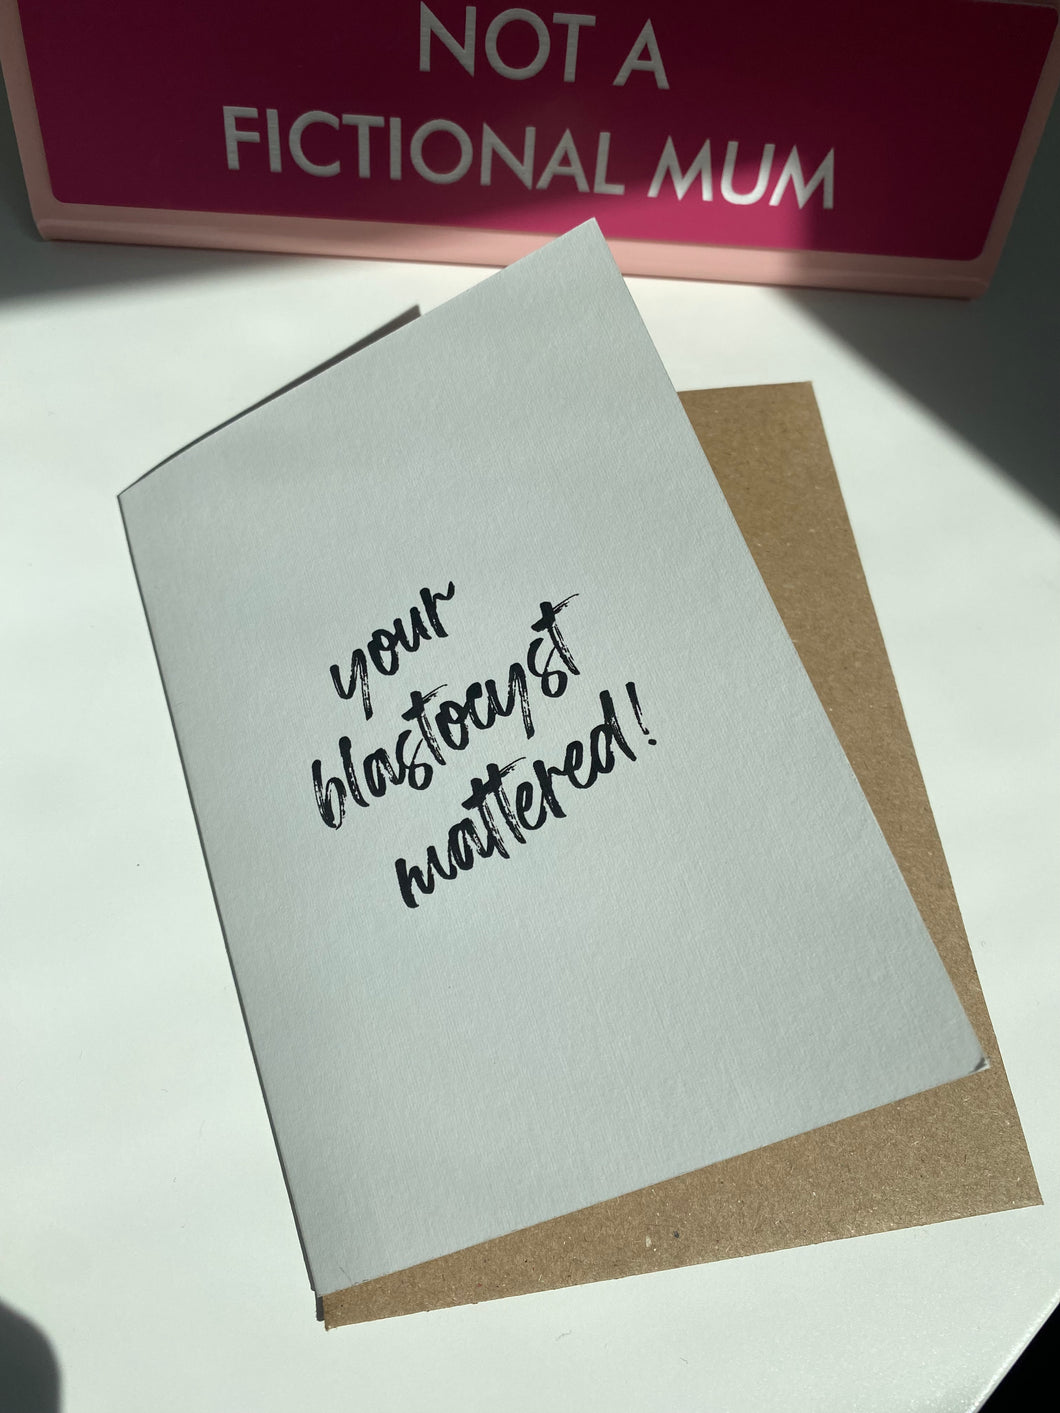 NOT A
FICTIONAL MUM
your
blastocyst
mattered!